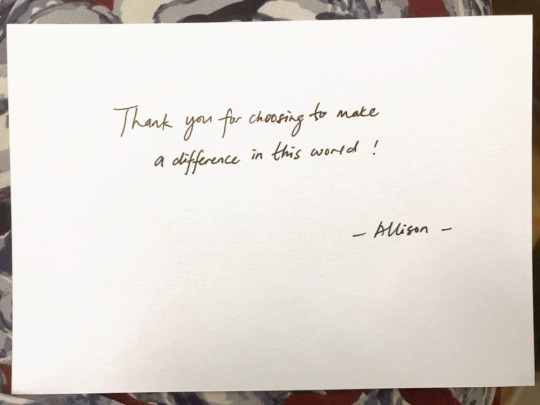 Thank you for choosing to make
a difference in this world !
– Allison –